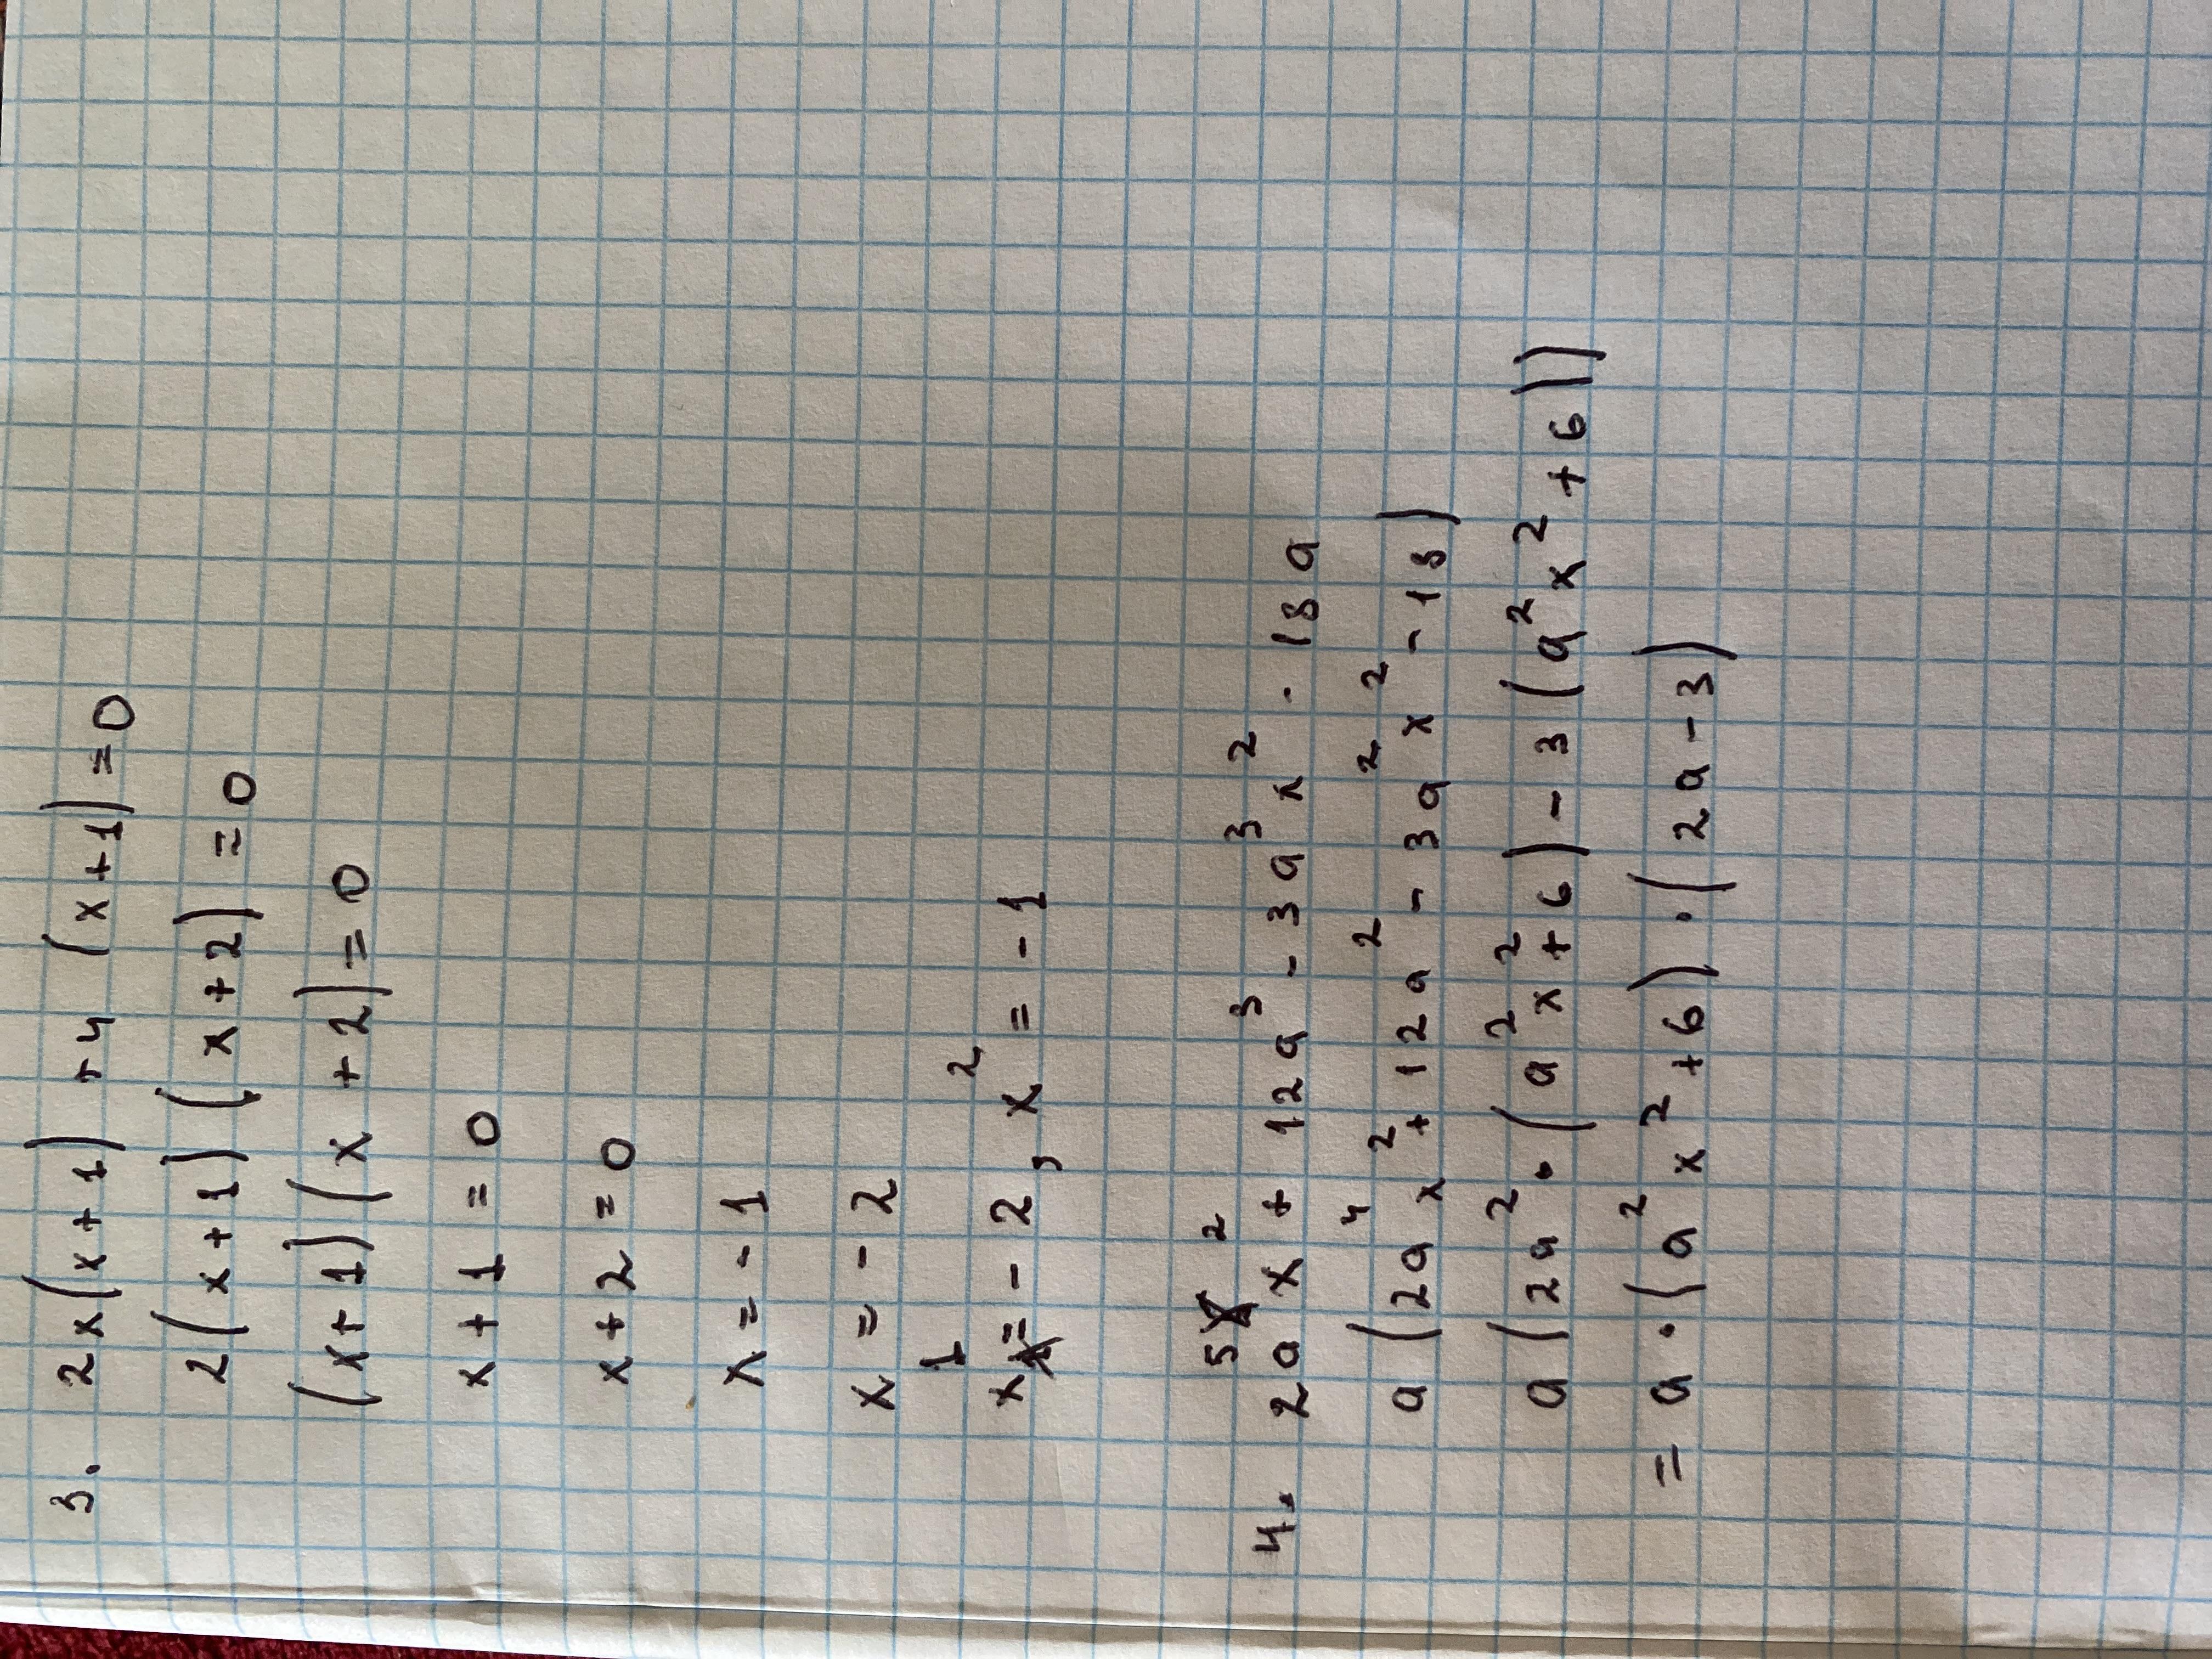 3. 2x(x+1) +4 (x+1)=0
2(x+1) (x+2)=0
(x+1)(x+2)=0
x+1=0
x+2=0
x=-1
x=-2
x¹=-2, x²=-1
4. 2a⁵x² + 12a³ - 3a³x² - 18a
a(2a⁴x² + 12a² - 3a²x² - 18)
a(2a²·(a²x²+6) - 3(a²x²+6))
= a·(a²x²+6)·(2a-3)